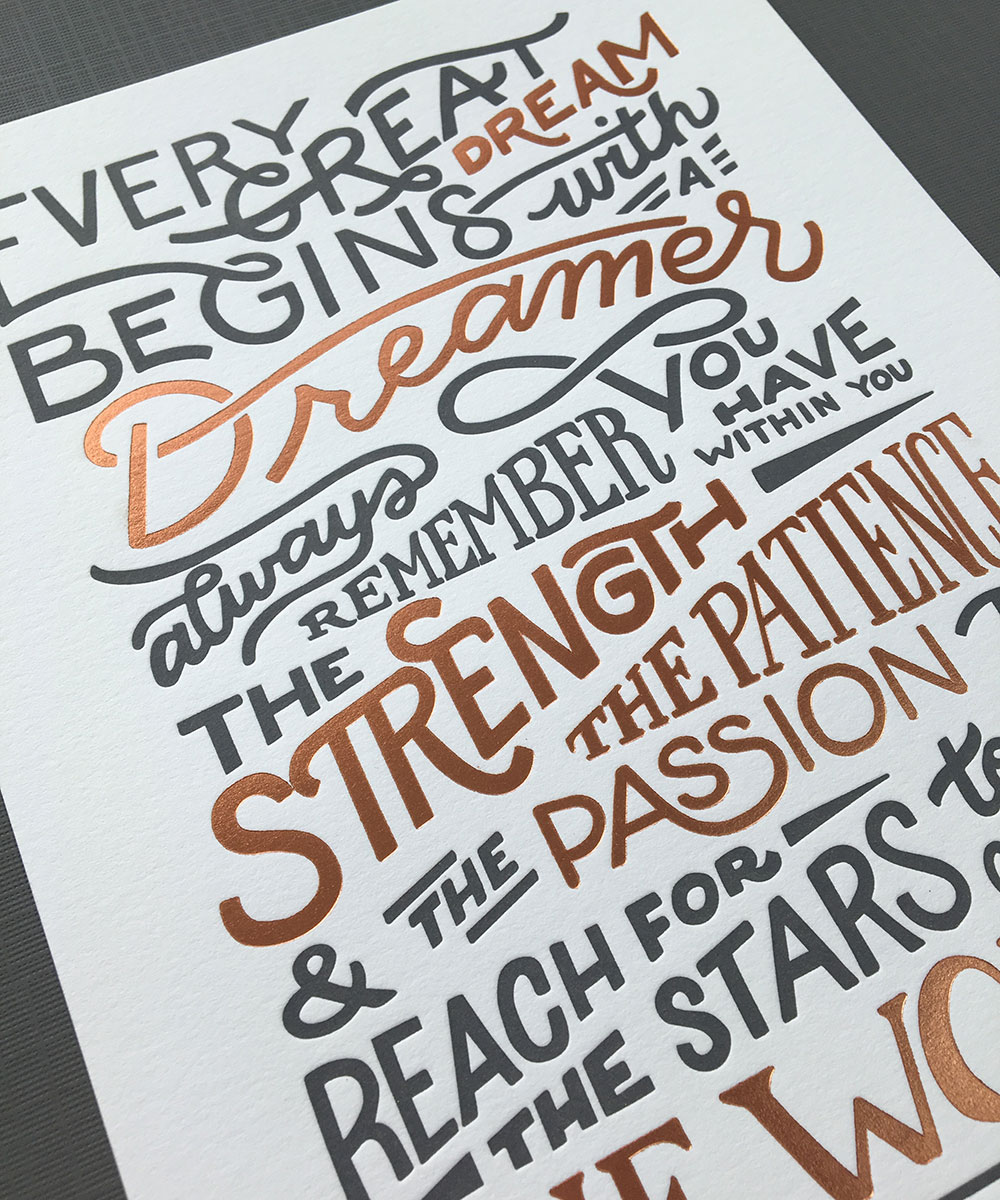 EVERY GREAT DREAM
BEGINS with A
Dreamer
always REMEMBER YOU HAVE WITHIN YOU
THE STRENGTH THE PATIENCE
& THE PASSION
REACH FOR
THE STARS